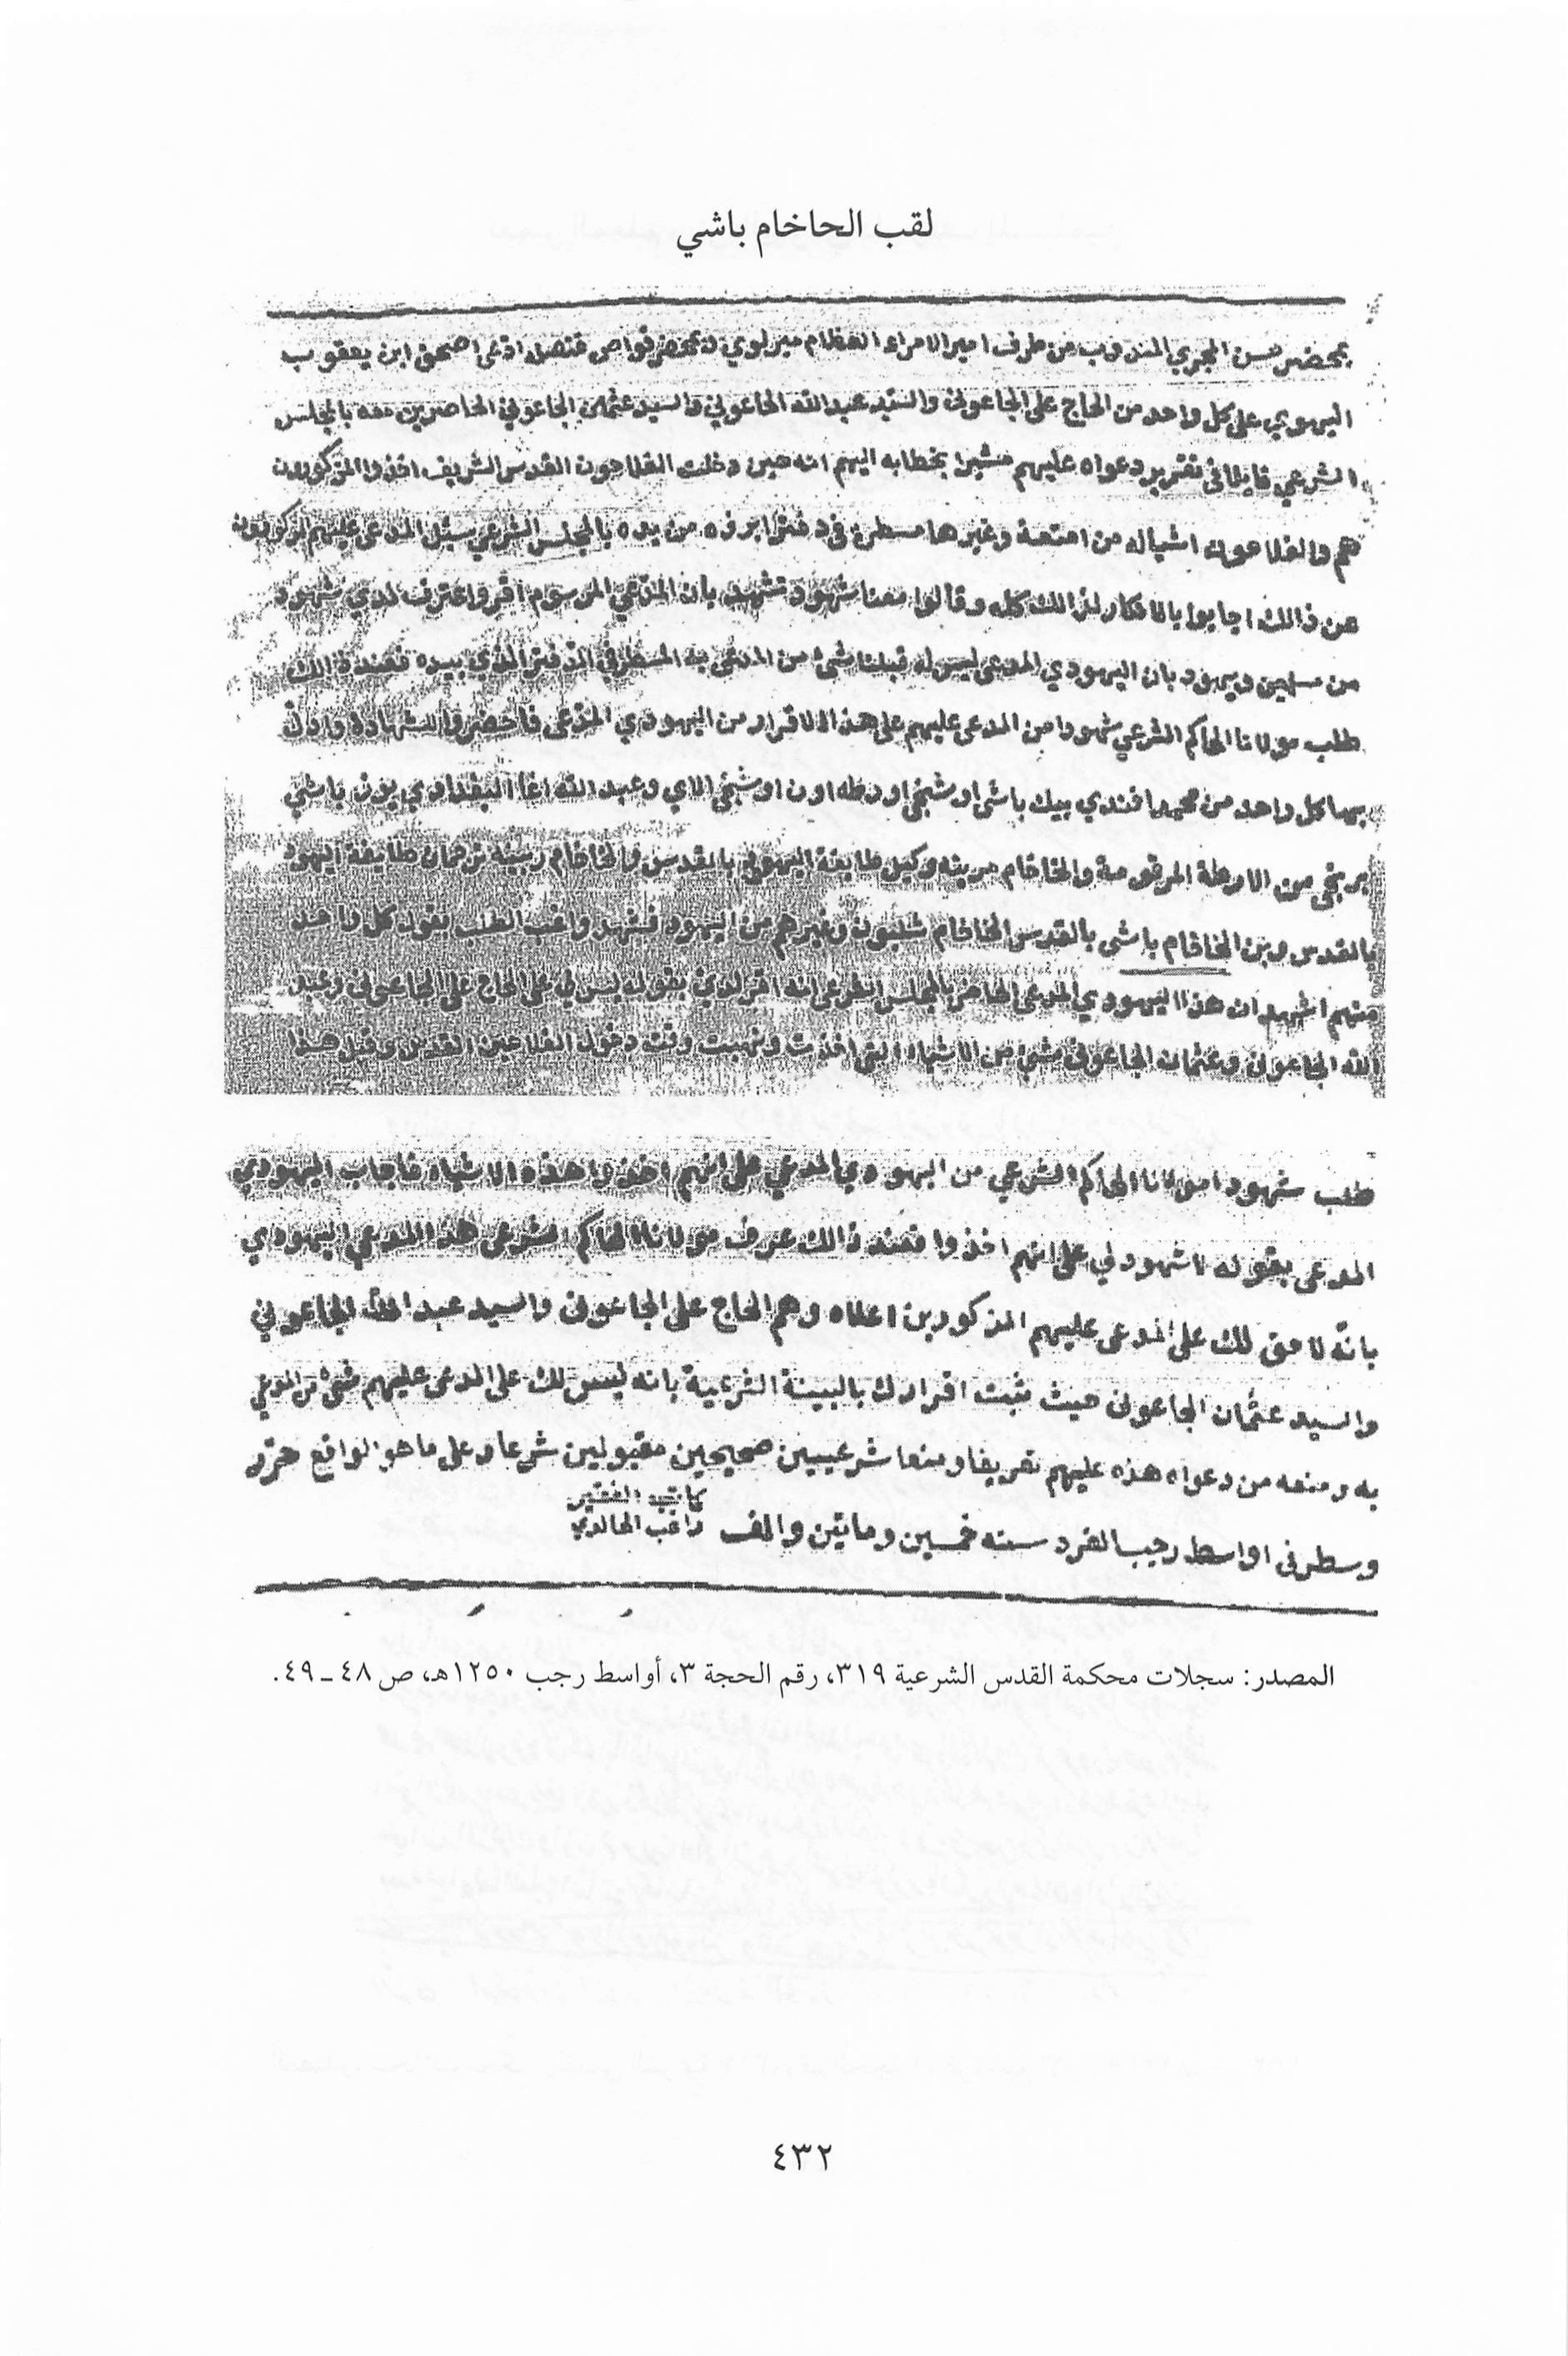 لقب الحاخام باشي
بمحضر حسن المندوب من طرف امير الامراء العظام ميرلوي قنصل ادعى ابن يعقوب
اليهودي على كل واحد من الحاج على الجاعوني والسيد عبد الله الجاعوني والسيد عثمان الجاعوني الحاضرين معه بالمجلس
الشرعي قايلا في تقرير دعواه عليهم مشيرا بخطابه اليهم انه حين دخلت الفلاحون القدس الشريف اخذوا المذكورون
هم والفلاحون اشيا له من امتعة وغيرها مسطره في دفتر ابرزه من يده بالمجلس الشرعي سئل المدعى عليهم المذكورون
عن ذالك اجابوا بالانكار لذالك كله وقالوا معنا شهود تشهد بان المدعي المرسوم اقر واعترف لدي شهود
من مسلمين ويهود بان اليهودي المدعى ليس له قبلنا شئ من المدعى به المسطر في الدفتر الذي بيده فعند ذالك
طلب مولانا الحاكم الشرعي شهودا من المدعى عليهم على هذا الاقرار من اليهودي المدعى فاحضر واللشهادة وادلى
بها كل واحد من محمد افندي بيك باشى اوجنجى اورطه اون اوجنجى الاي وعبد الله اغا البغدادي يوز باشي
برنجى من الاورطة المرقومة والخاخام وكيل طايفة اليهود بالقدس والخاخام ترجمان طايفة اليهود
بالقدس وبن الخاخام باشى بالقدس الخاخام شلبون وغيرهم من اليهود فشهد واغب الطلب بقول كل واحد
منهم اشهد ان هذا اليهودي المدعى الحاضر بالمجلس الشرعى انه اقر لدي بقوله ليس لي على الحاج على الجاعوني وعبد
الله الجاعوني وعثمان الجاعوني شئ من الاشياء التى اخذت ونهبت وقت دخول الفلاحين القدس وقبل هذا
طلب شهودا مولانا الحاكم الشرعي من اليهودي المدعي على انهم اخذوا هذه الاشياء فاجاب اليهودي
المدعى بقوله لا شهود لي على انهم اخذوا فعند ذالك عرف مولانا الحاكم الشرعى هذا المدعي اليهودي
بانه لا حق لك على المدعى عليهم المذكورين اعلاه وهم الحاج على الجاعونى والسيد عبد الله الجاعوني
والسيد عثمان الجاعونى حيث ثبت اقرارك بالبينة الشرعية بانه ليس لك على المدعى عليهم شئ من المدعي
به ومنعه من دعواه هذه عليهم تعريفا ومنعا شرعيين صحيحين مقبولين شرعا وعلى ما هو الواقع حرر
وسطر فى اواسط رجب الفرد سنه خمسين ومايتين والف كاتبه الفقير
راغب الخالدي
المصدر: سجلات محكمة القدس الشرعية ٣١٩، رقم الحجة ٣، أواسط رجب ١٢٥٠هـ، ص ٤٨ـ٤٩.
٤٣٢